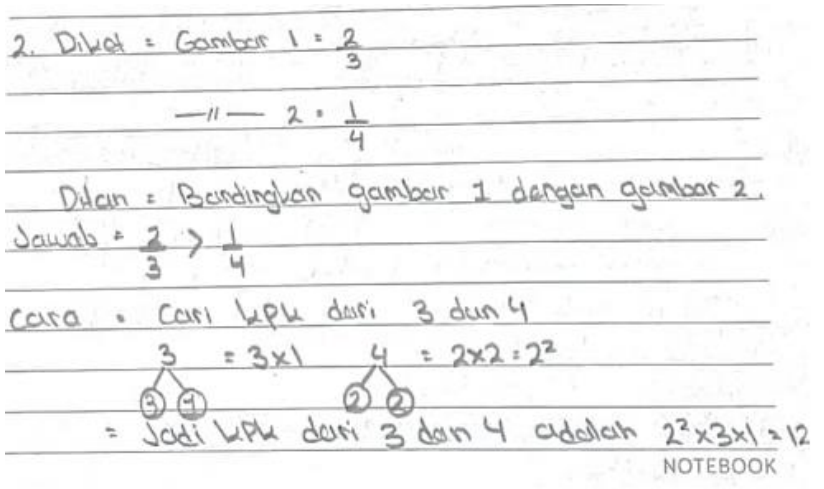 2. Diket = Gambar 1 = 2/3
—//— 2 = 1/4
Ditan = Bandingkan gambar 1 dengan gambar 2.
Jawab = 2/3 > 1/4
Cara = Cari kpk dari 3 dan 4
3 = 3x1 4 = 2x2 = 2²
3 1 2 2
= Jadi kpk dari 3 dan 4 adalah 2²x3x1 = 12
NOTEBOOK